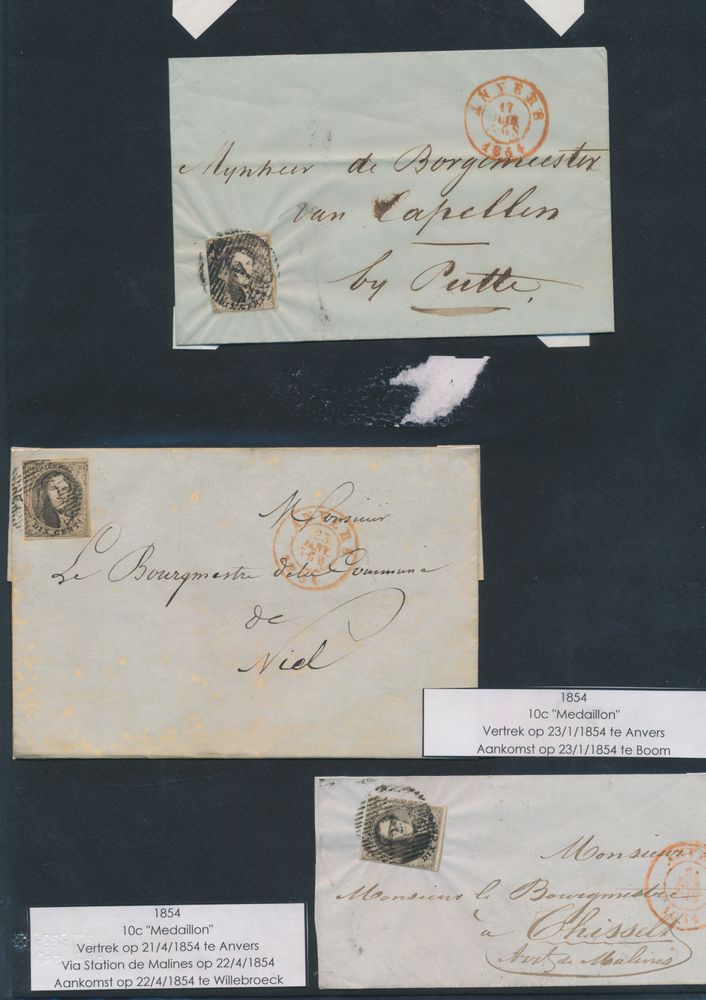 ANVERS
17
JUIN
1854
Mynheer de Borgemeester
van Capellen
by Putte,
DIX CENTS
Monsieur
ANVERS
23
JANV
1854
Le Bourgmestre de la Commune
de
Niel
1854
10c "Medaillon"
Vertrek op 23/1/1854 te Anvers
Aankomst op 23/1/1854 te Boom
Monsieur
Monsieur le Bourgmestre
à Thisselt
Arrt. de Malines
1854
1854
10c "Medaillon"
Vertrek op 21/4/1854 te Anvers
Via Station de Malines op 22/4/1854
Aankomst op 22/4/1854 te Willebroeck